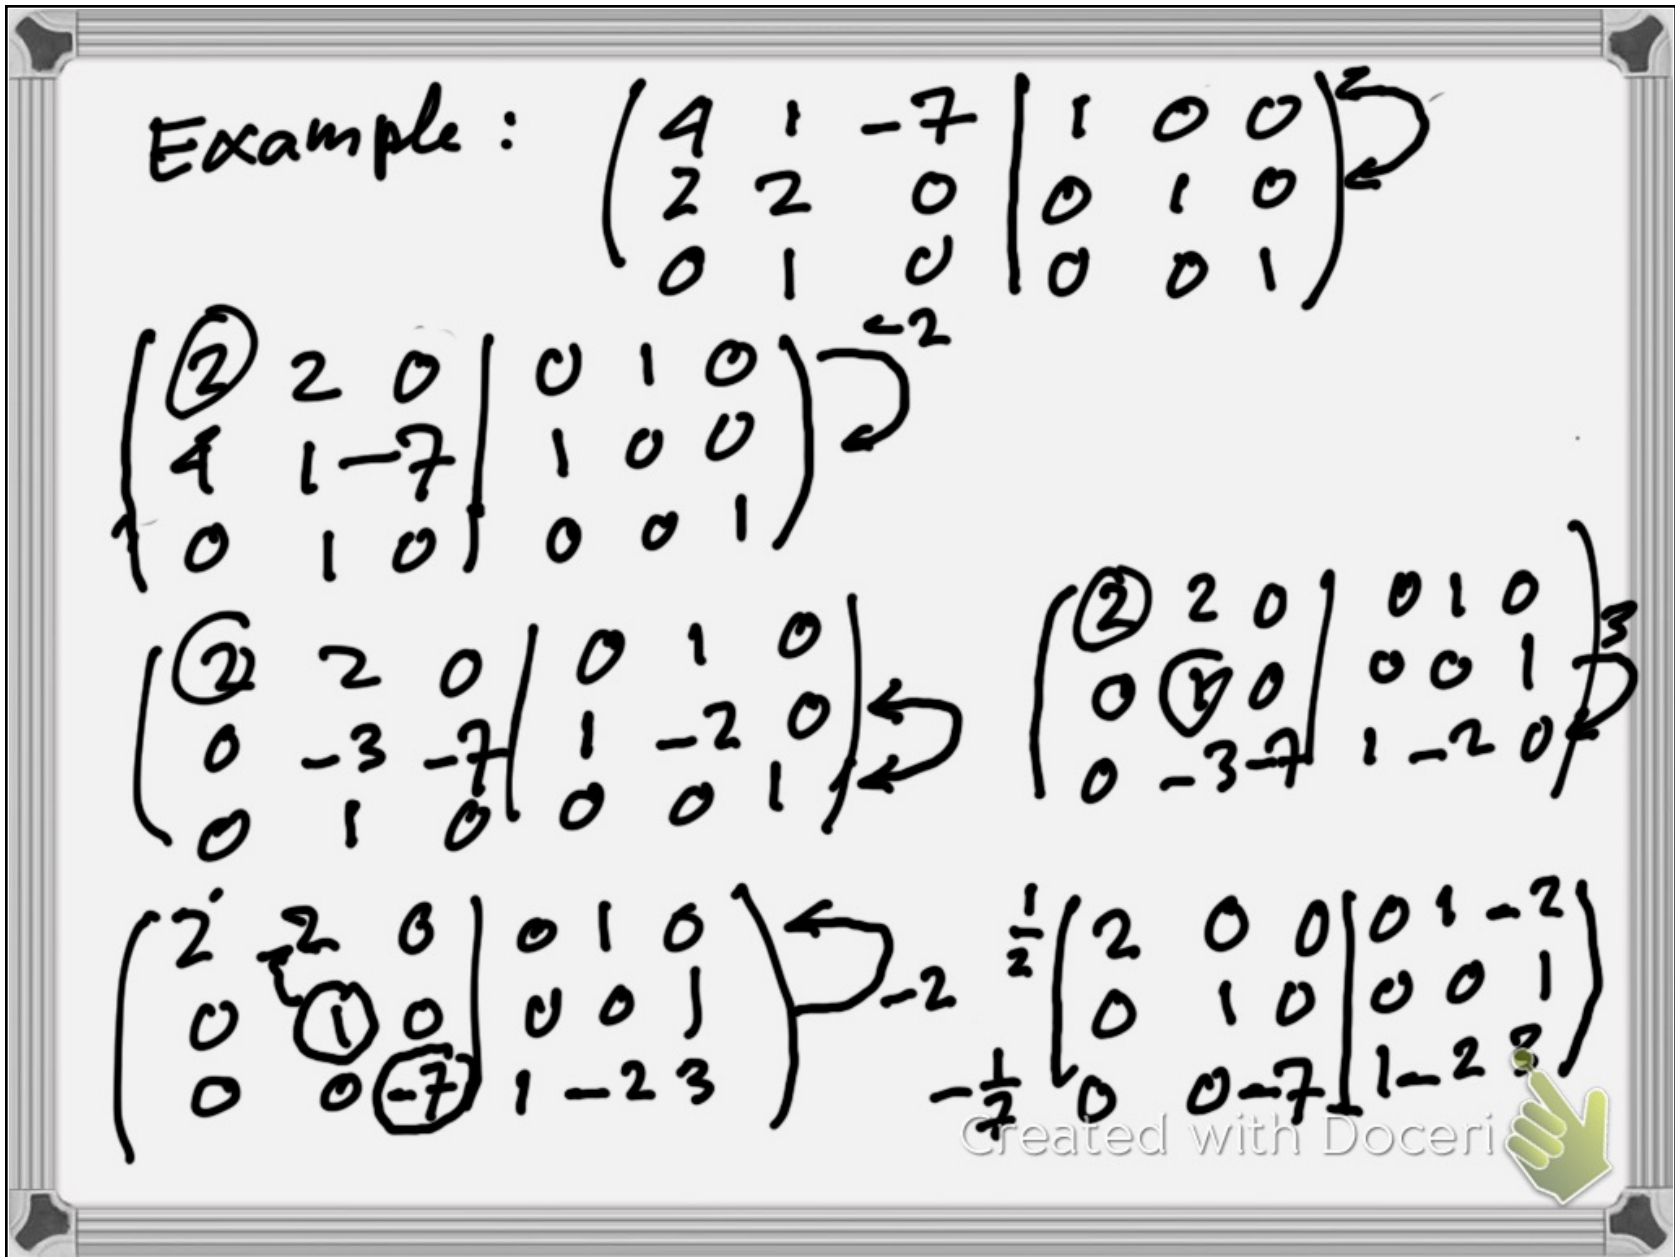 Example : ( 4 1 -7 | 1 0 0 )
2 2 0 | 0 1 0
0 1 0 | 0 0 1
( 2 2 0 | 0 1 0 ) -2
4 1 -7 | 1 0 0
0 1 0 | 0 0 1
( 2 2 0 | 0 1 0 )
0 -3 -7 | 1 -2 0
0 1 0 | 0 0 1
( 2 2 0 | 0 1 0 ) 3
0 1 0 | 0 0 1
0 -3 -7 | 1 -2 0
( 2 2 0 | 0 1 0 )
0 1 0 | 0 0 1 -2
0 0 -7 | 1 -2 3
1/2 ( 2 0 0 | 0 1 -2 )
0 1 0 | 0 0 1
-1/7 0 0 -7 | 1 -2 3
Created with Doceri